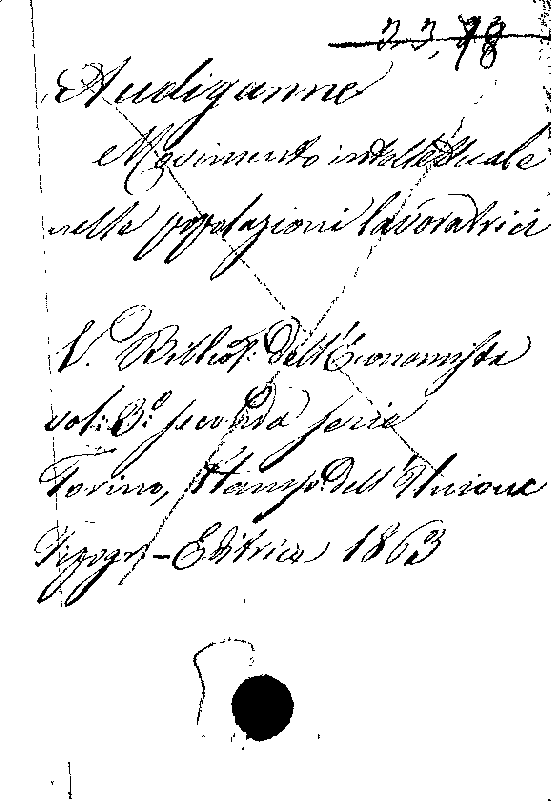 33,78
Audiganne
Movimento intellettuale
nelle popolazioni lavoratrici
V. Bibliot: dell'Economista
vol: 3.º seconda serie
Torino, Stamp: dell'Unione
Tipogr.-Editrice 1863